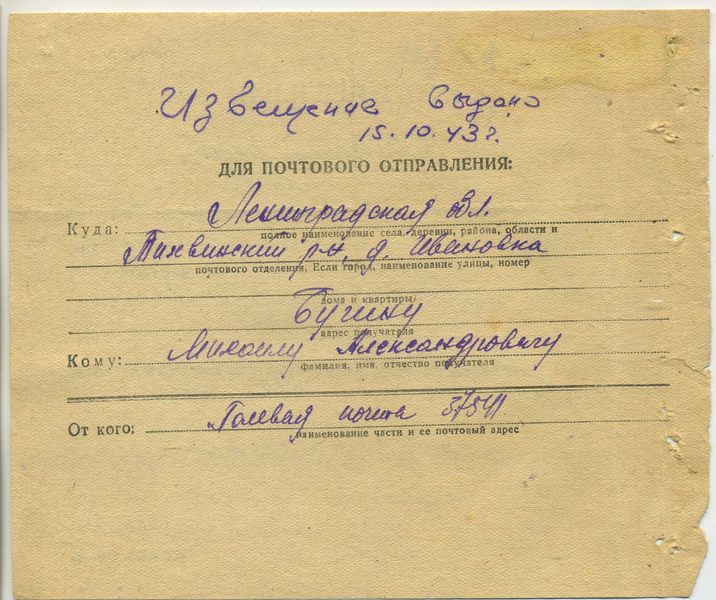 Извещение выдано
15.10.43 г.
ДЛЯ ПОЧТОВОГО ОТПРАВЛЕНИЯ:
Куда: Ленинградская обл.
полное наименование села, деревни, района, области и
Тихвинский р-н, д. Ивановка
почтового отделения. Если город, наименование улицы, номер
дома и квартиры
Бугину
адрес получателя
Кому: Михаилу Александровичу
фамилия, имя, отчество получателя
От кого: Полевая почта
наименование части и ее почтовый адрес